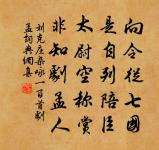 向令從七國
是自列陪臣
太尉空稱賞
非知劇孟人
刘克庄杂咏一百首劇
孟詞典網集